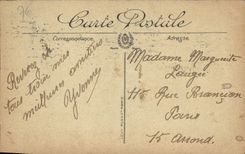 Carte Postale
Correspondance
Adresse
Recevez
tous trois mes
meilleures amitiés
Yvonne
Madame Marguerite
115 Rue Brancion
Paris
15 Arrond.